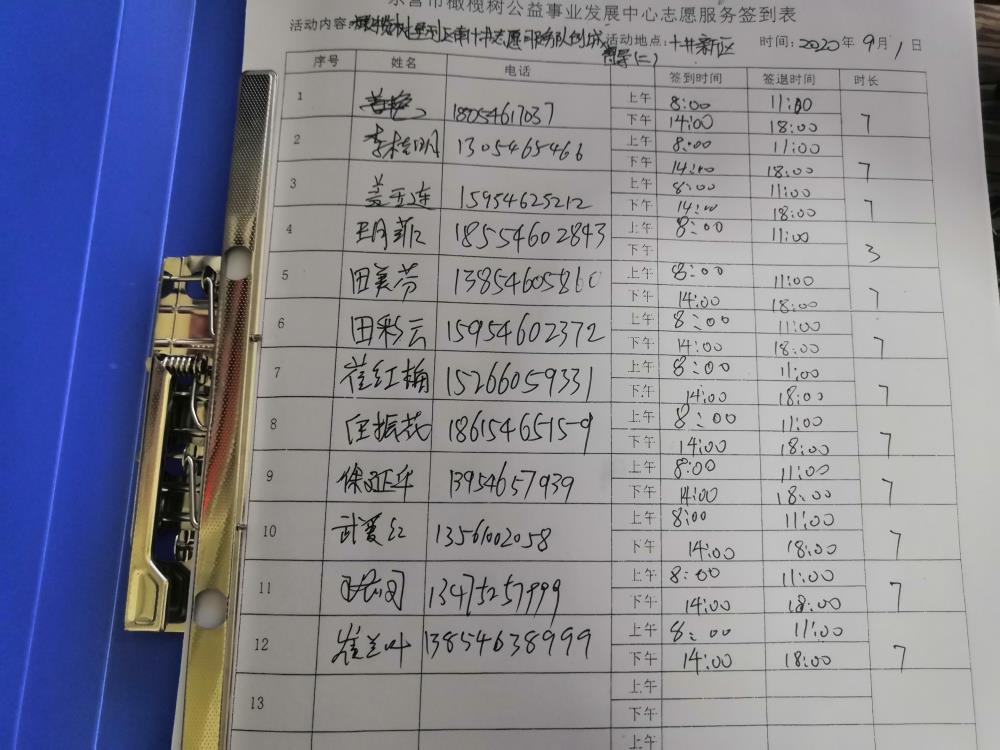 东营市橄榄树公益事业发展中心志愿服务签到表
活动内容: 活动地点: 新区 时间: 2020年9月1日
序号 姓名 电话 签到时间 签退时间 时长
1 18054617037 上午 8:00 11:00 7
下午 14:00 18:00
2 李桂明 1305465466 上午 8:00 11:00 7
下午 14:00 18:00
3 盖玉连 15954625212 上午 8:00 11:00 7
下午 14:00 18:00
4 18554602843 上午 8:00 11:00 3
下午
5 田美芳 13854605860 上午 8:00 11:00 7
下午 14:00 18:00
6 田彩云 15954602372 上午 8:00 11:00 7
下午 14:00 18:00
7 崔红梅 15266059331 上午 8:00 11:00 7
下午 14:00 18:00
8 18615465159 上午 8:00 11:00 7
下午 14:00 18:00
9 13954657939 上午 8:00 11:00 7
下午 14:00 18:00
10 武爱红 13561002058 上午 8:00 11:00 7
下午 14:00 18:00
11 13475257999 上午 8:00 11:00 7
下午 14:00 18:00
12 崔兰叶 13854638999 上午 8:00 11:00 7
下午 14:00 18:00
13 上午
下午
上午